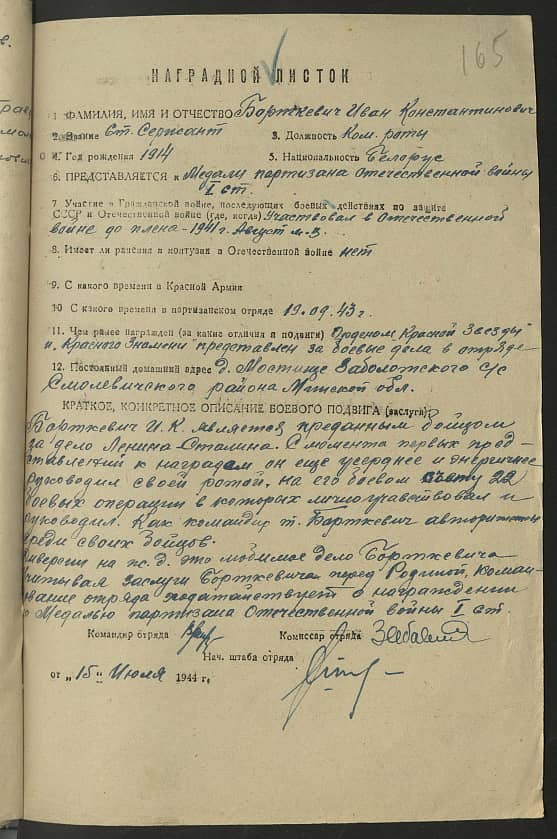 165
НАГРАДНОЙ ЛИСТОК
1 ФАМИЛИЯ, ИМЯ И ОТЧЕСТВО Борткевич Иван Константинович
2. Звание Ст. Сержант 3. Должность Ком. роты
4. Год рождения 1914 5. Национальность Белорус
6. ПРЕДСТАВЛЯЕТСЯ к Медали партизана Отечественной войны
I ст.
7 Участие в Гражданской войне, последующих боевых действиях по защите
СССР и Отечественной войне (где, когда) Участвовал в Отечественной
войне до плена - 1941 г. Август м-ц.
8. Имеет ли ранения и контузии в Отечественной войне нет
9. С какого времени в Красной Армии
10 С какого времени в партизанском отряде 19.09.43 г.
11. Чем ранее награжден (за какие отличия и подвиги) Орденом „Красной Звезды"
и „Красного Знамени" представлен за боевые дела в отряде
12. Постоянный домашний адрес д. Мостище Заболотского с/с
Смолевичского района Минской обл.
КРАТКОЕ, КОНКРЕТНОЕ ОПИСАНИЕ БОЕВОГО ПОДВИГА (заслуга)
Борткевич И.К. является преданным бойцом
за дело Ленина-Сталина. С момента первых пред-
ставлений к наградам он еще усерднее и энергичнее
руководил своей ротой, на его боевом счету 22
боевых операции в которых лично учавствовал и
руководил. Как командир т. Борткевич авторитетен
среди своих бойцов.
Диверсии на ж.д. это любимое дело Борткевича
Считывая заслуги Борткевича перед Родиной, коман-
дование отряда ходатайствует о награждении
Медалью партизана Отечественной войны I ст.
Командир отряда Комиссар отряда
Нач. штаба отряда
от „15" Июля 1944 г.